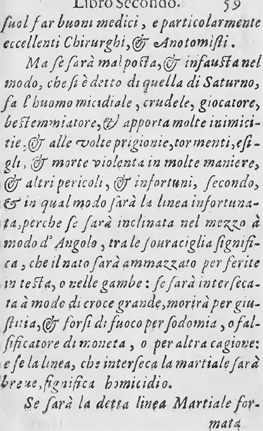 Libro Secondo. 59
ſuol far buoni medici, e particolarmente
eccellenti Chirurghi, & Anotomiſti.
Ma ſe ſarà mal poſta, & infauſta nel
modo, che ſi è detto di quella di Saturno,
fa l'huomo micidiale, crudele, giocatore,
beſtemmiatore, & apporta molte inimici-
tie, & alle volte prigionie, tormenti, eſi-
gli, & morte violenta in molte maniere,
& altri pericoli, & infortuni, ſecondo,
& in qual modo ſarà la linea infortuna-
ta, perche ſe ſarà inclinata nel mezzo à
modo d'Angolo, tra le ſouraciglia ſignifi-
ca, che il nato ſarà ammazzato per ferite
in teſta, o nelle gambe: ſe ſarà interſeca-
ta à modo di croce grande, morirà per giu-
ſtitia, & forſi di fuoco per ſodomia, o fal-
ſificatore di moneta, o per altra cagione:
e ſe la linea, che interſeca la martiale ſarà
breue, ſignifica homicidio.
Se ſarà la detta linea Martiale for-
mata